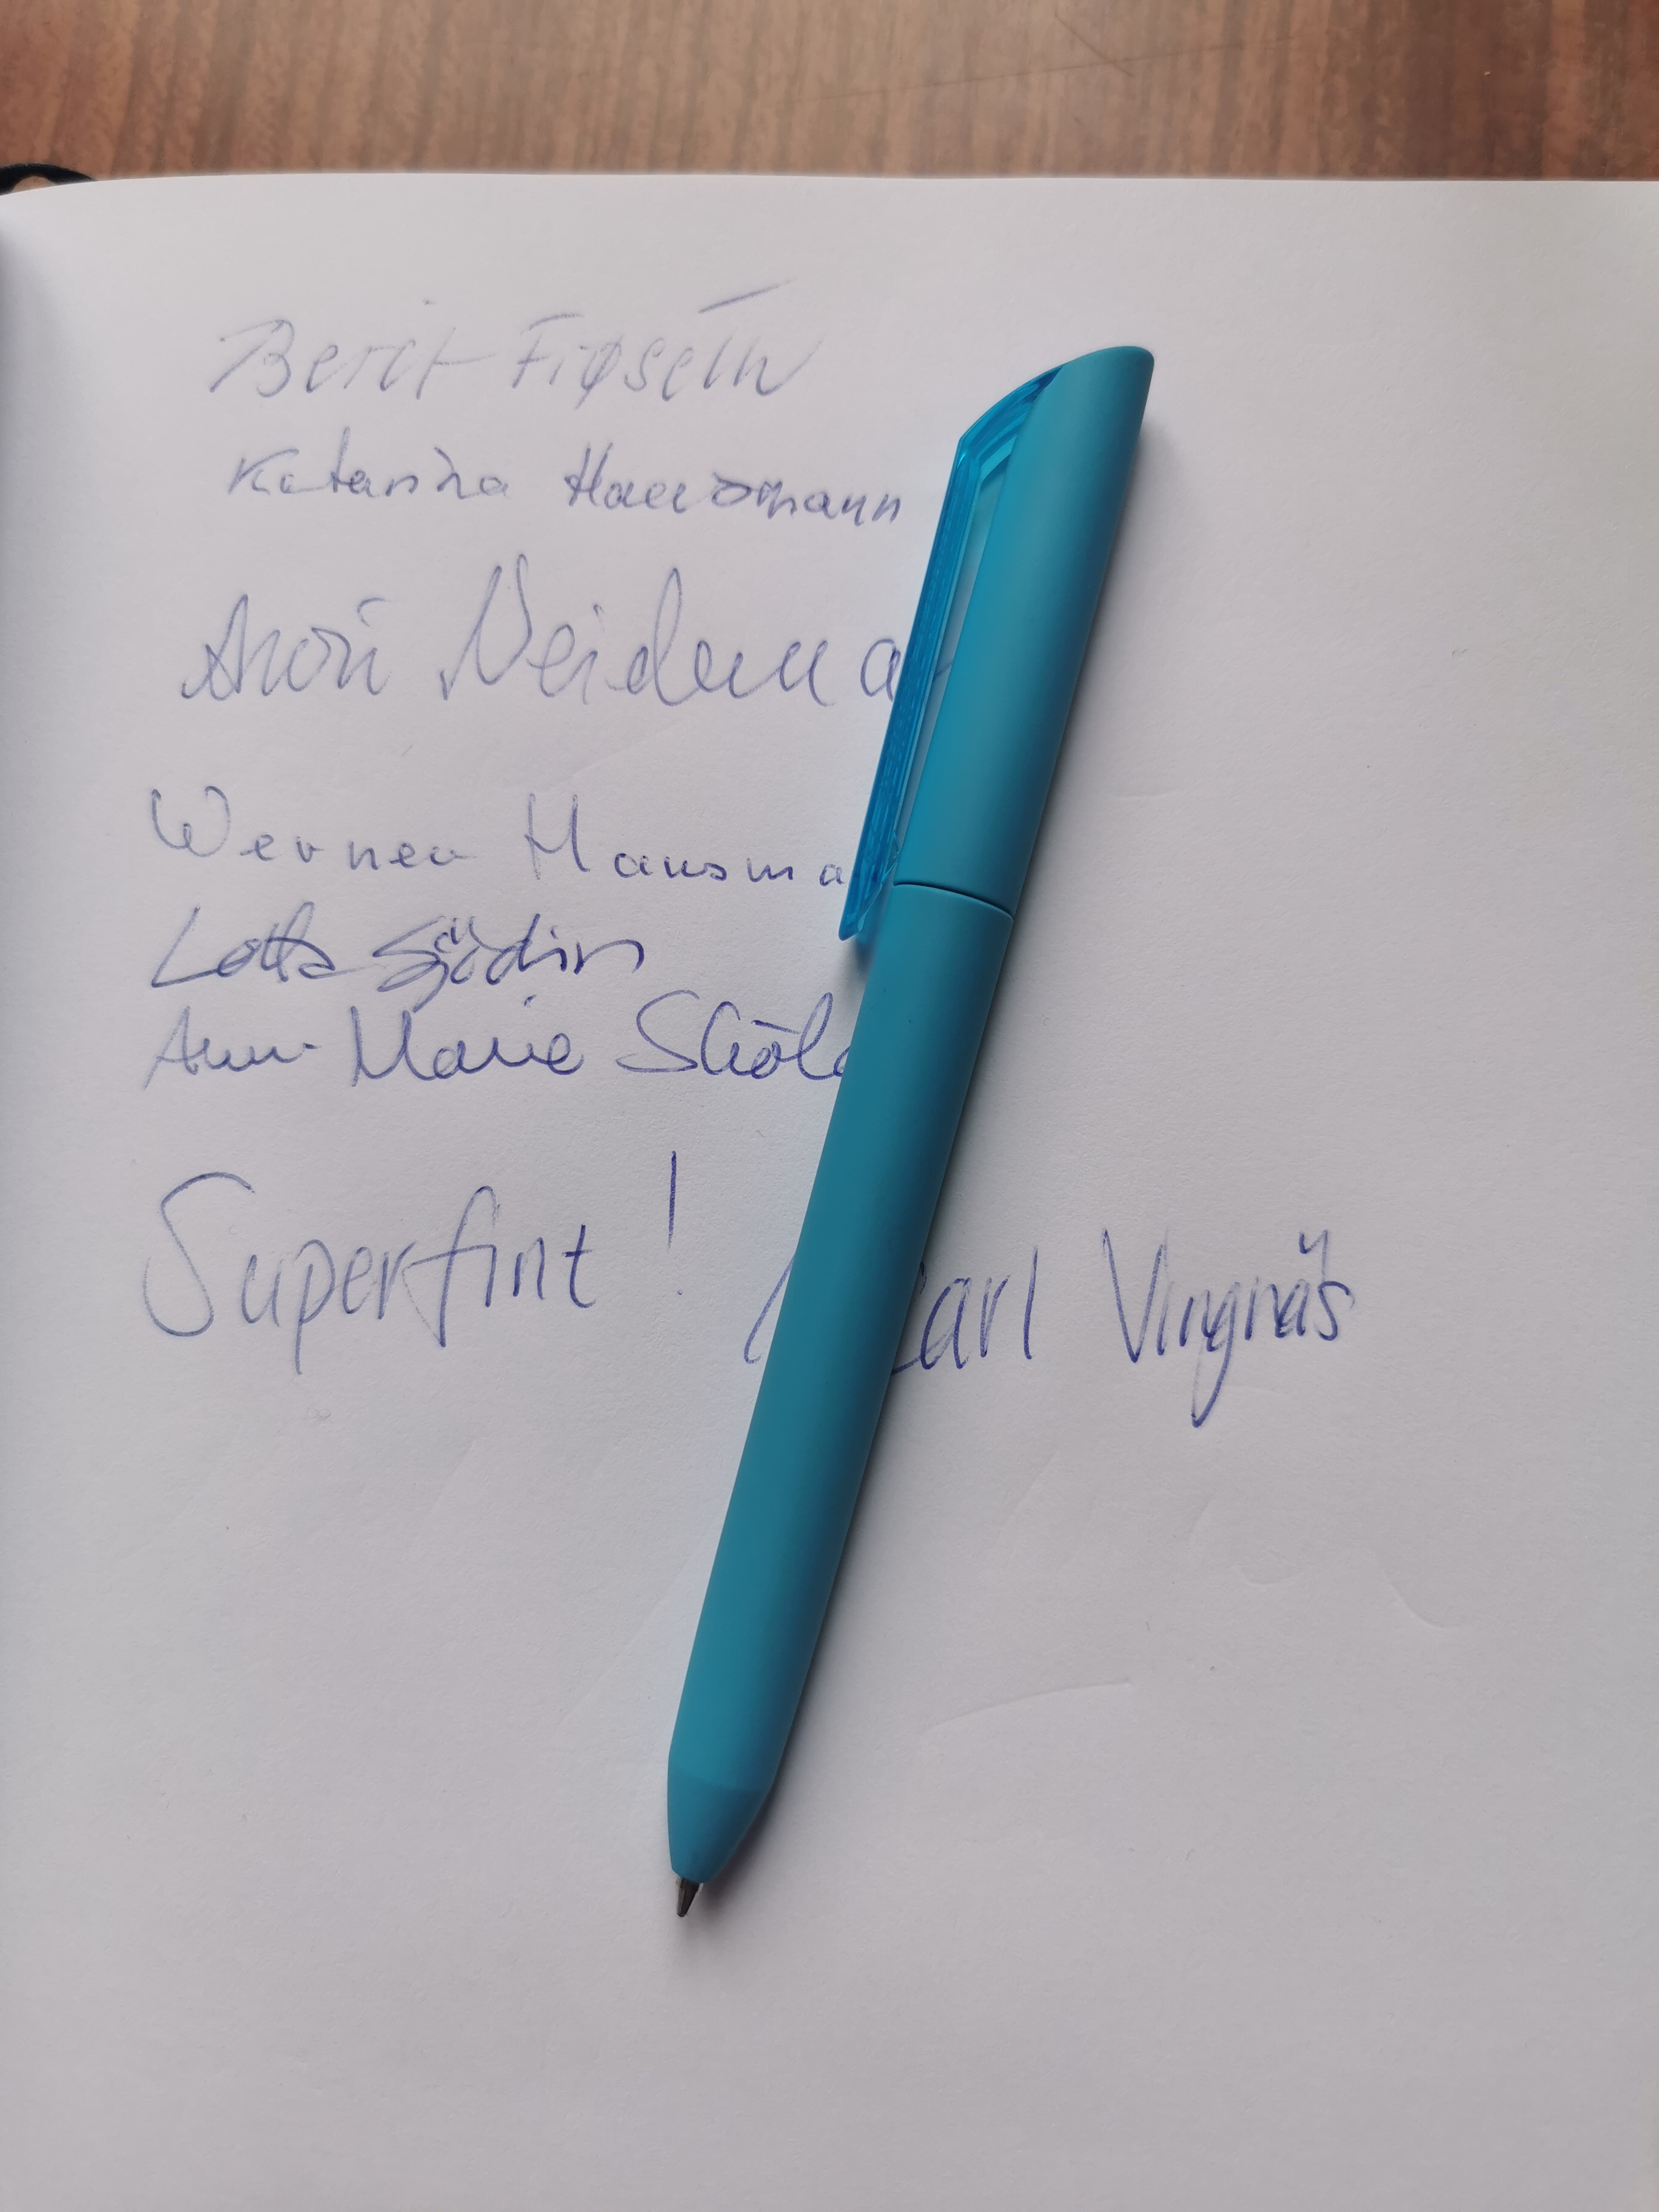 Berit Frøseth
Katarina Hausmann
Neidema
Werner Hausma
Lotta Sjödin
Ann-Marie Sköld
Superfint! /Carl Vingnäs